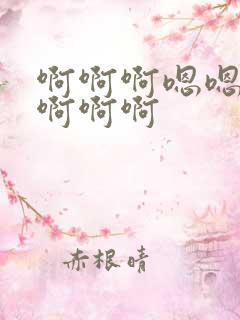 啊啊啊嗯嗯
啊啊啊
赤根晴